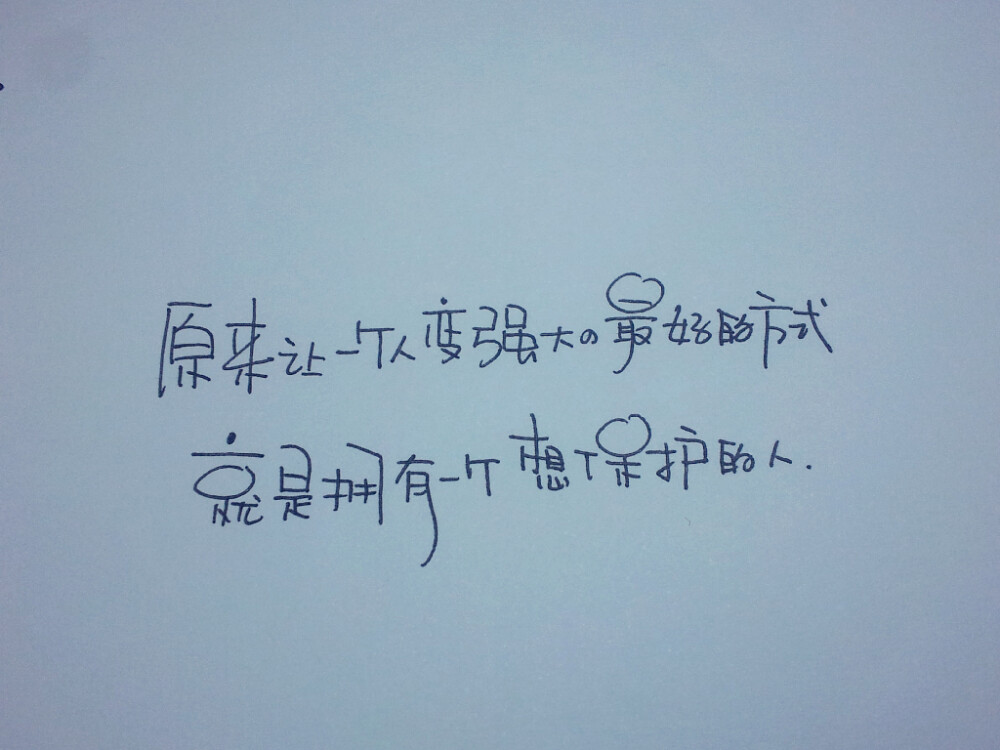 原来让一个人变强大の最好的方式
就是拥有一个想保护的人.